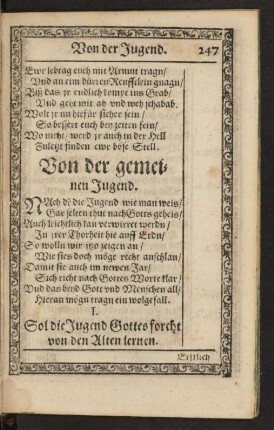 Von der Jugend. 247
Ewr lebtag euch mit Armut tragn/
Vnd an eim dürren Knuffelein gnagn/
Biß das jr endlich kompt ins Grab/
Vnd geht mit ach vnd weh schabab.
Wolt jr nu hiefür sicher sein/
So bessert euch bey zeiten fein/
Wo nicht/ werd jr auch in der Hell
Zuletzt finden ewr böse Stell.
Von der gemei-
nen Jugend.
NAch dē die Jugend wie man weis/
Gar selten thut nach Gottes geheis/
Auch leichtlich kan verwirret werdn/
In jrer Thorheit hie auff Erdn/
So wolln wir itzo zeigen an/
Wie sies doch möge recht anfahan/
Damit sie auch im newen Jar/
Sich richt nach Gottes Worte klar/
Vnd das beyd Gott vnd Menschen all/
Hieran mögn tragn ein wolgefall.
I.
Sol die Jugend Gottes forcht
von den Alten lernen.
Erstlich